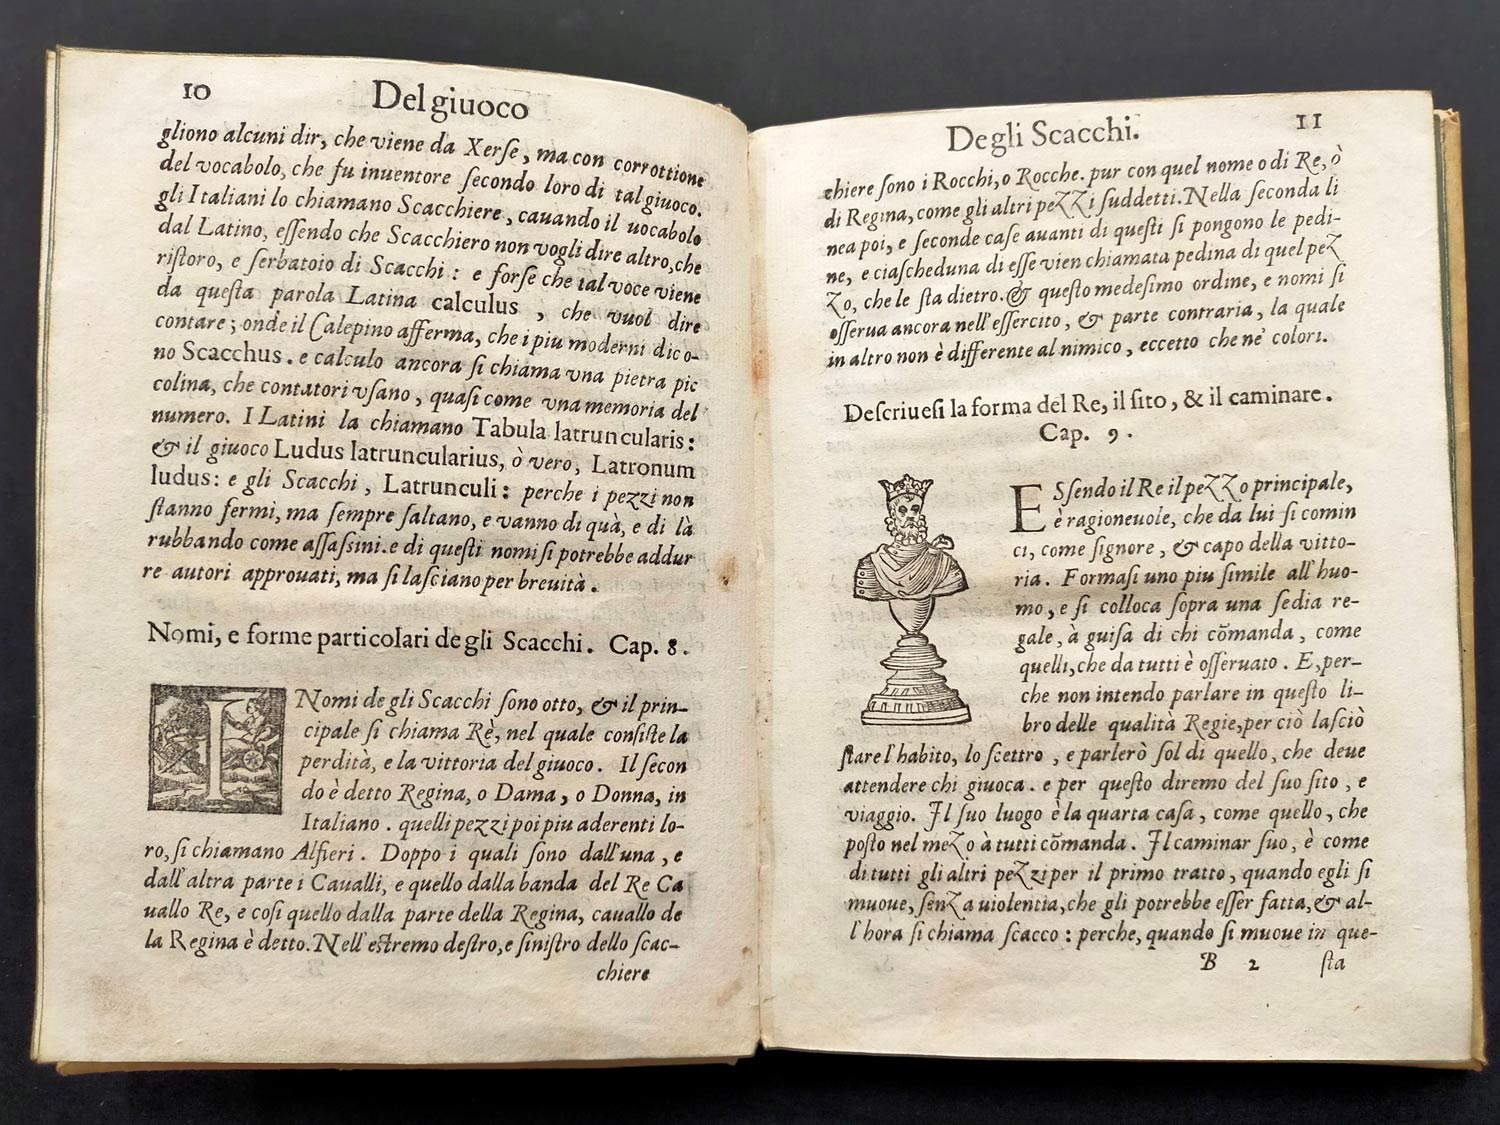 10
Del giuoco
gliono alcuni dir, che viene da Xerse, ma con corrottione
del vocabolo, che fu inuentore secondo loro di tal giuoco.
gli Italiani lo chiamano Scacchiere, cauando il uocabolo
dal Latino, essendo che Scacchiero non vogli dire altro, che
ristoro, e serbatoio di Scacchi: e forse che tal voce viene
da questa parola Latina calculus, che vuol dire
contare; onde il Calepino afferma, che i piu moderni dico-
no Scacchus. e calculo ancora si chiama vna pietra pic
colina, che contatori vsano, quasi come vna memoria del
numero. I Latini la chiamano Tabula latruncularis:
& il giuoco Ludus latruncularius, ò vero, Latronum
ludus: e gli Scacchi, Latrunculi: perche i pezzi non
stanno fermi, ma sempre saltano, e vanno di quà, e di là
rubbando come assassini. e di questi nomi si potrebbe addur
re autori approuati, ma si lasciano per breuità.
Nomi, e forme particolari de gli Scacchi. Cap. 8.
I Nomi de gli Scacchi sono otto, & il prin-
cipale si chiama Rè, nel quale consiste la
perdità, e la vittoria del giuoco. Il secon
do è detto Regina, o Dama, o Donna, in
Italiano. quelli pezzi poi piu aderenti lo-
ro, si chiamano Alfieri. Doppo i quali sono dall'una, e
dall'altra parte i Caualli, e quello dalla banda del Re Ca
uallo Re, e cosi quello dalla parte della Regina, cauallo de
la Regina è detto. Nell'estremo destro, e sinistro dello scac-
chiere
11
De gli Scacchi.
chiere sono i Rocchi, o Rocche. pur con quel nome o di Re, ò
di Regina, come gli altri pezzi suddetti. Nella seconda li
nea poi, e seconde case auanti di questi si pongono le pedi-
ne, e ciascheduna di esse vien chiamata pedina di quel pez
zo, che le sta dietro. & questo medesimo ordine, e nomi si
osserua ancora nell'essercito, & parte contraria, la quale
in altro non è differente al nimico, eccetto che ne' colori.
Descriuesi la forma del Re, il sito, & il caminare.
Cap. 9.
ESsendo il Re il pezzo principale,
è ragioneuole, che da lui si comin
ci, come signore, & capo della vitto-
ria. Formasi uno piu simile all'huo-
mo, e si colloca sopra una sedia re-
gale, à guisa di chi cōmanda, come
quelli, che da tutti è osseruato. E, per-
che non intendo parlare in questo li-
bro delle qualità Regie, per ciò lasciò
stare l'habito, lo scettro, e parlerò sol di quello, che deue
attendere chi giuoca. e per questo diremo del suo sito, e
viaggio. Il suo luogo è la quarta casa, come quello, che
posto nel mezo à tutti cōmanda. Il caminar suo, è come
di tutti gli altri pezzi per il primo tratto, quando egli si
muoue, senza uiolentia, che gli potrebbe esser fatta, & al-
l'hora si chiama scacco: perche, quando si muoue in que-
B 2 sta